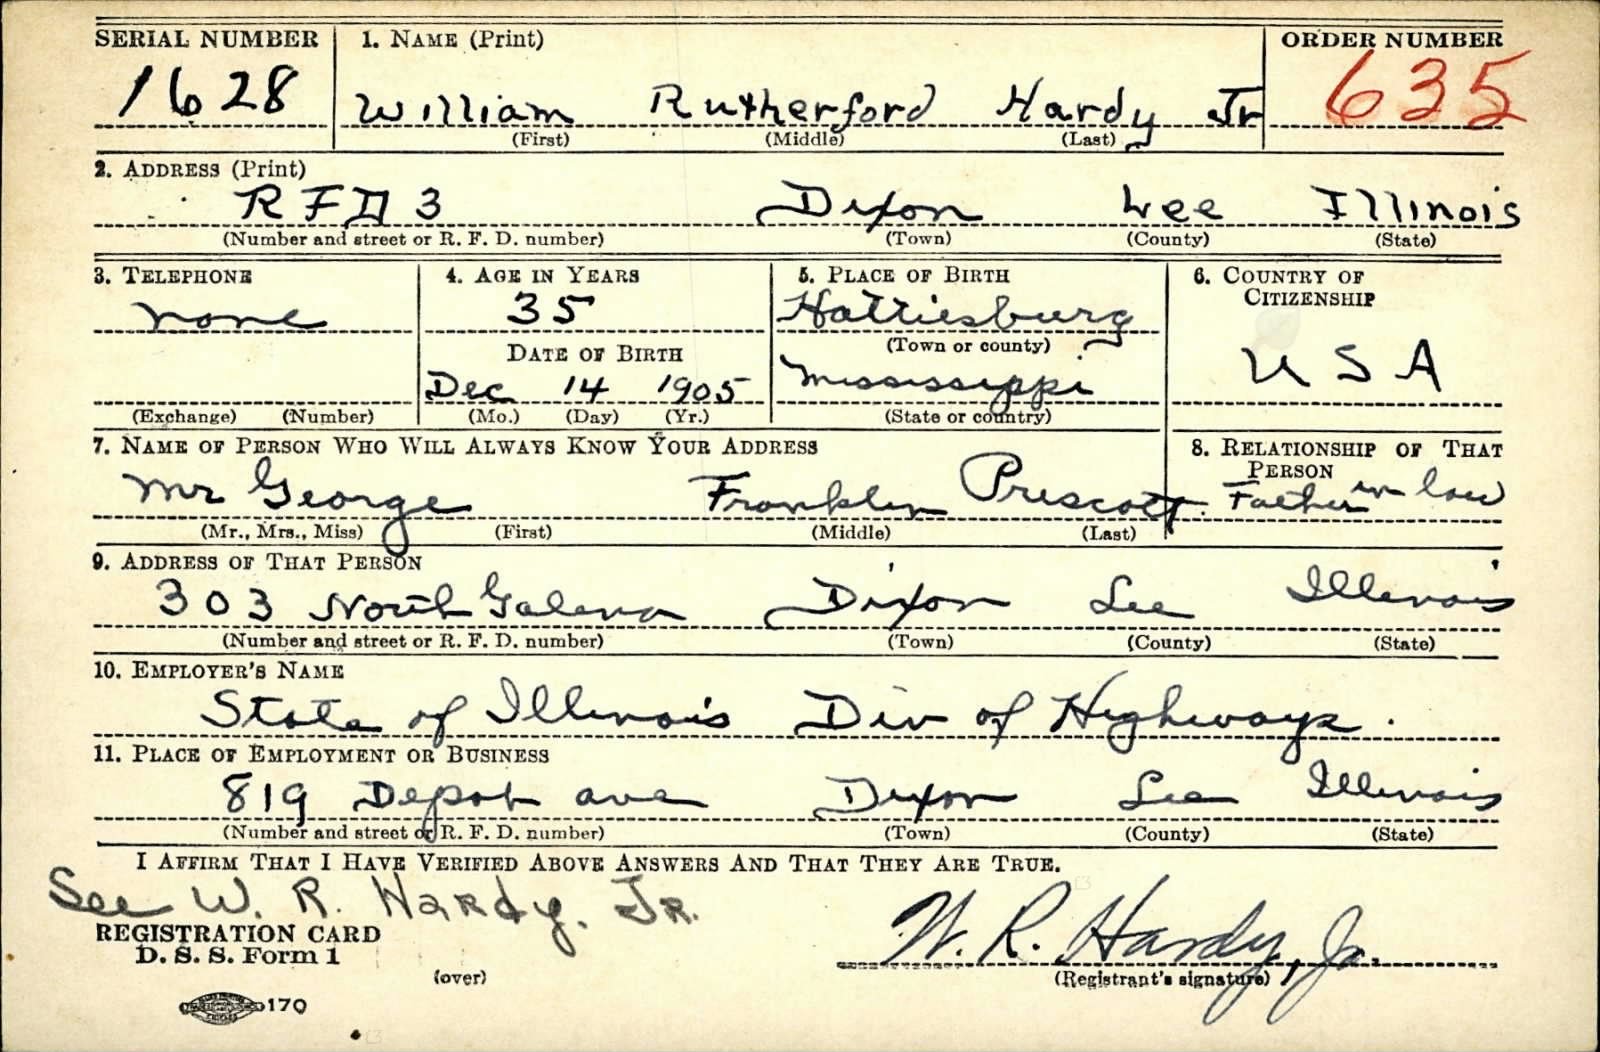 SERIAL NUMBER 1. NAME (Print) ORDER NUMBER
1628 William Rutherford Hardy Jr 635
(First) (Middle) (Last)
2. ADDRESS (Print)
RFD 3 Dixon Lee Illinois
(Number and street or R. F. D. number) (Town) (County) (State)
3. TELEPHONE 4. AGE IN YEARS 5. PLACE OF BIRTH 6. COUNTRY OF CITIZENSHIP
none 35 Hattiesburg
DATE OF BIRTH (Town or county) USA
Dec 14 1905 Mississippi
(Exchange) (Number) (Mo.) (Day) (Yr.) (State or country)
7. NAME OF PERSON WHO WILL ALWAYS KNOW YOUR ADDRESS 8. RELATIONSHIP OF THAT PERSON
Mr George Franklin Prescott Father in law
(Mr., Mrs., Miss) (First) (Middle) (Last)
9. ADDRESS OF THAT PERSON
303 North Galena Dixon Lee Illinois
(Number and street or R. F. D. number) (Town) (County) (State)
10. EMPLOYER'S NAME
State of Illinois Div of Highways.
11. PLACE OF EMPLOYMENT OR BUSINESS
819 Depot ave Dixon Lee Illinois
(Number and street or R. F. D. number) (Town) (County) (State)
I AFFIRM THAT I HAVE VERIFIED ABOVE ANSWERS AND THAT THEY ARE TRUE.
See W. R. Hardy, Jr.
REGISTRATION CARD W. R. Hardy, Jr.
D. S. S. Form 1 (over) (Registrant's signature)
170